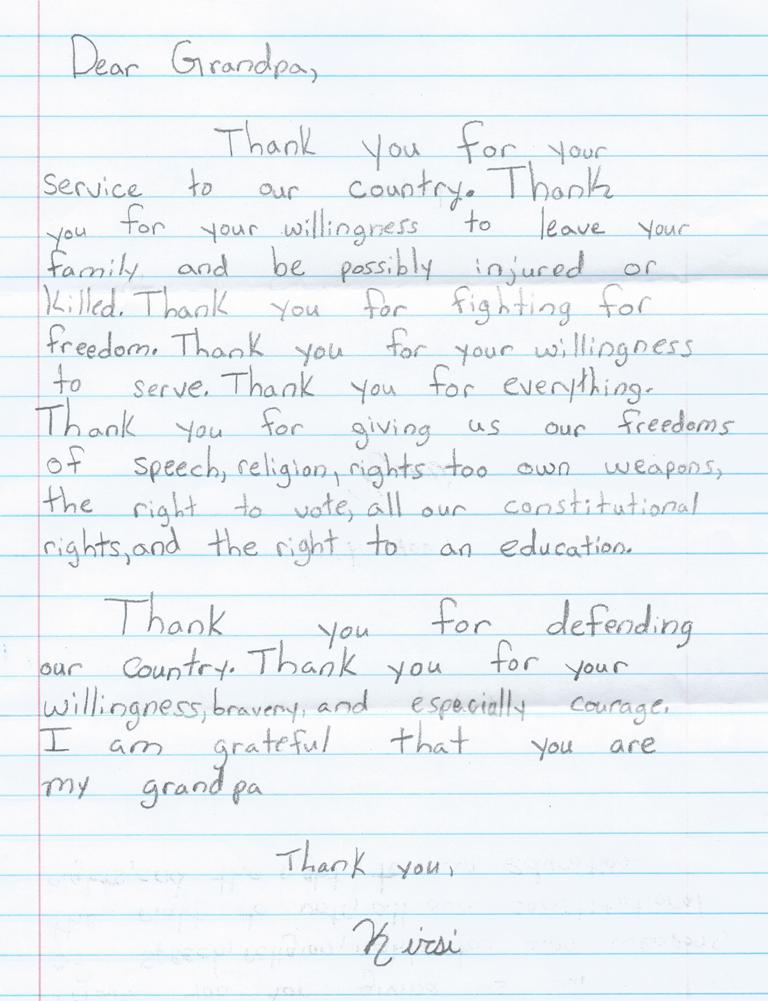 Dear Grandpa,
Thank you for your
service to our country. Thank
you for your willingness to leave your
family and be possibly injured or
killed. Thank you for fighting for
freedom. Thank you for your willingness
to serve. Thank you for everything.
Thank you for giving us our freedoms
of speech, religion, rights too own weapons,
the right to vote, all our constitutional
rights, and the right to an education.
Thank you for defending
our country. Thank you for your
willingness, bravery, and especially courage.
I am grateful that you are
my grandpa
Thank you,
Kirsi